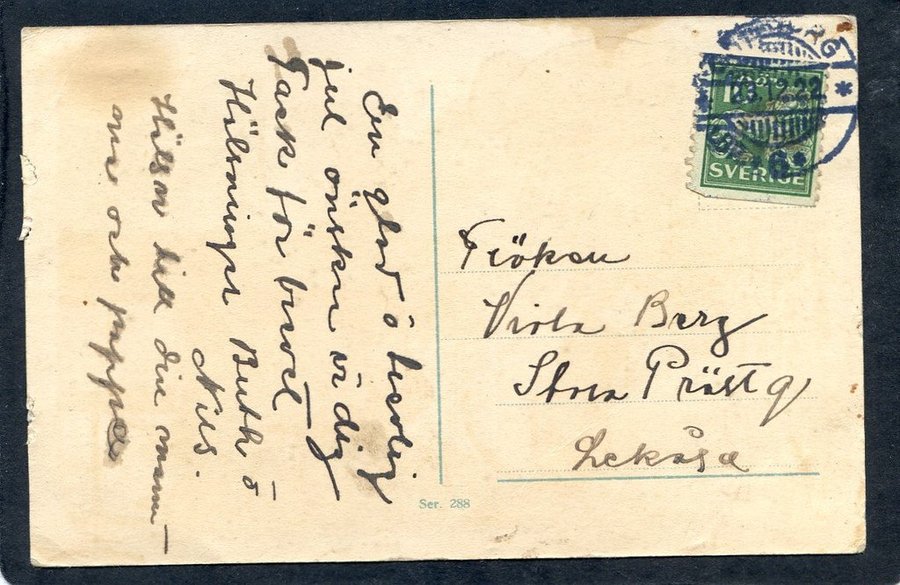 En glad ö trevlig
jul önskar vi dig
Tack för brevet
Hälsningar Ruth ö
Nils.
Hälsar till din mamm–
ma och pappa
23.12.22
SVERIGE
Fröken
Viola Berg
Stora Prästg
Lekåsa
Ser. 288